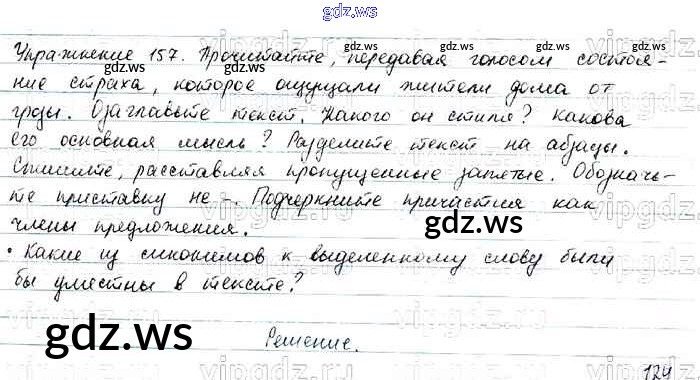 gdz.ws
Упражнение 157. Прочитайте, передавая голосом состоя-
ние страха, которое ощущали жители дома от
грозы. Озаглавьте текст. Какого он стиля? Какова
его основная мысль? Разделите текст на абзацы.
Спишите, расставляя пропущенные запятые. Обозначь-
те приставку не-. Подчеркните причастия как
члены предложения.
• Какие из синонимов к выделенному слову были
бы уместны в тексте?
Решение.
gdz.ws
124